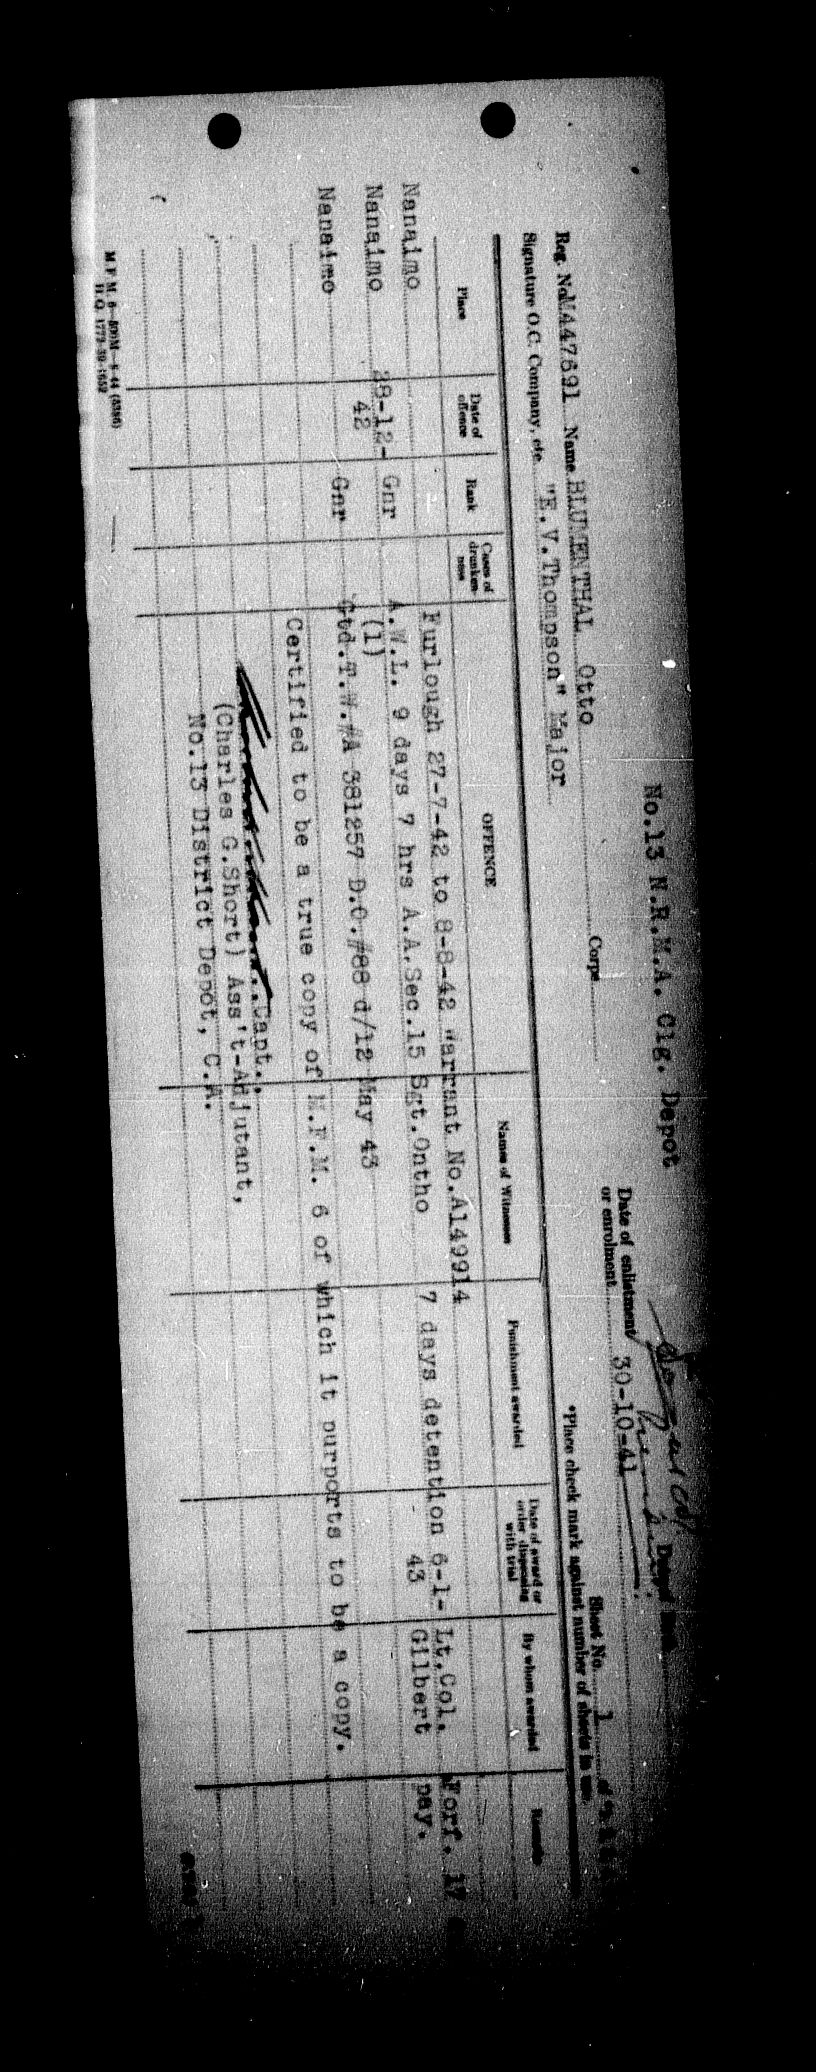 No.13 N.R.M.A. Clg. Depot
Date of enlistment
or enrolment 30-10-41
Sheet No. 1 of
*Place check mark against number of sheets in use.
Reg. No. M447691 Name BLUMENTHAL Otto Corps
Signature O.C. Company, etc. "E.V.Thompson" Major
Place Date of offence Rank Cases of drunkenness OFFENCE Names of Witnesses Punishment awarded Date of award or order dispensing with trial By whom awarded Remarks
Nanaimo Furlough 27-7-42 to 8-8-42 Warrant No.A149914
Nanaimo 28-12-42 Gnr A.W.L. 9 days 7 hrs A.A.Sec.15 Sgt.Ontho 7 days detention 6-1-43 Lt.Col. Gilbert Forf. 17 pay.
(1)
Nanaimo Gnr Gtd.T.W.#A 381257 D.O.#88 d/12 May 43
Certified to be a true copy of M.F.M. 6 of which it purports to be a copy.
Capt.,
(Charles G.Short) Ass't-Adjutant,
No.13 District Depot, C.A.
M.F.M. 6—500M—8-44 (8386)
H.Q. 1772-39-1652